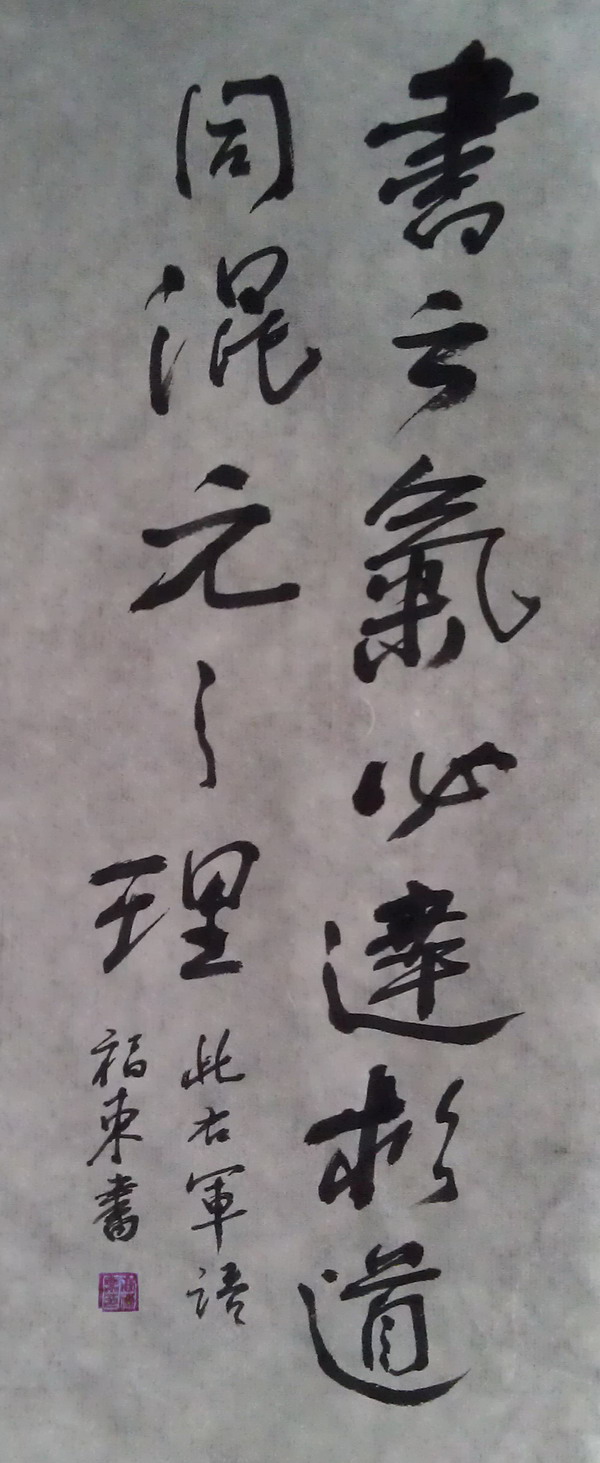 書之氣必達於道
同混元之理
此右軍語
福東書